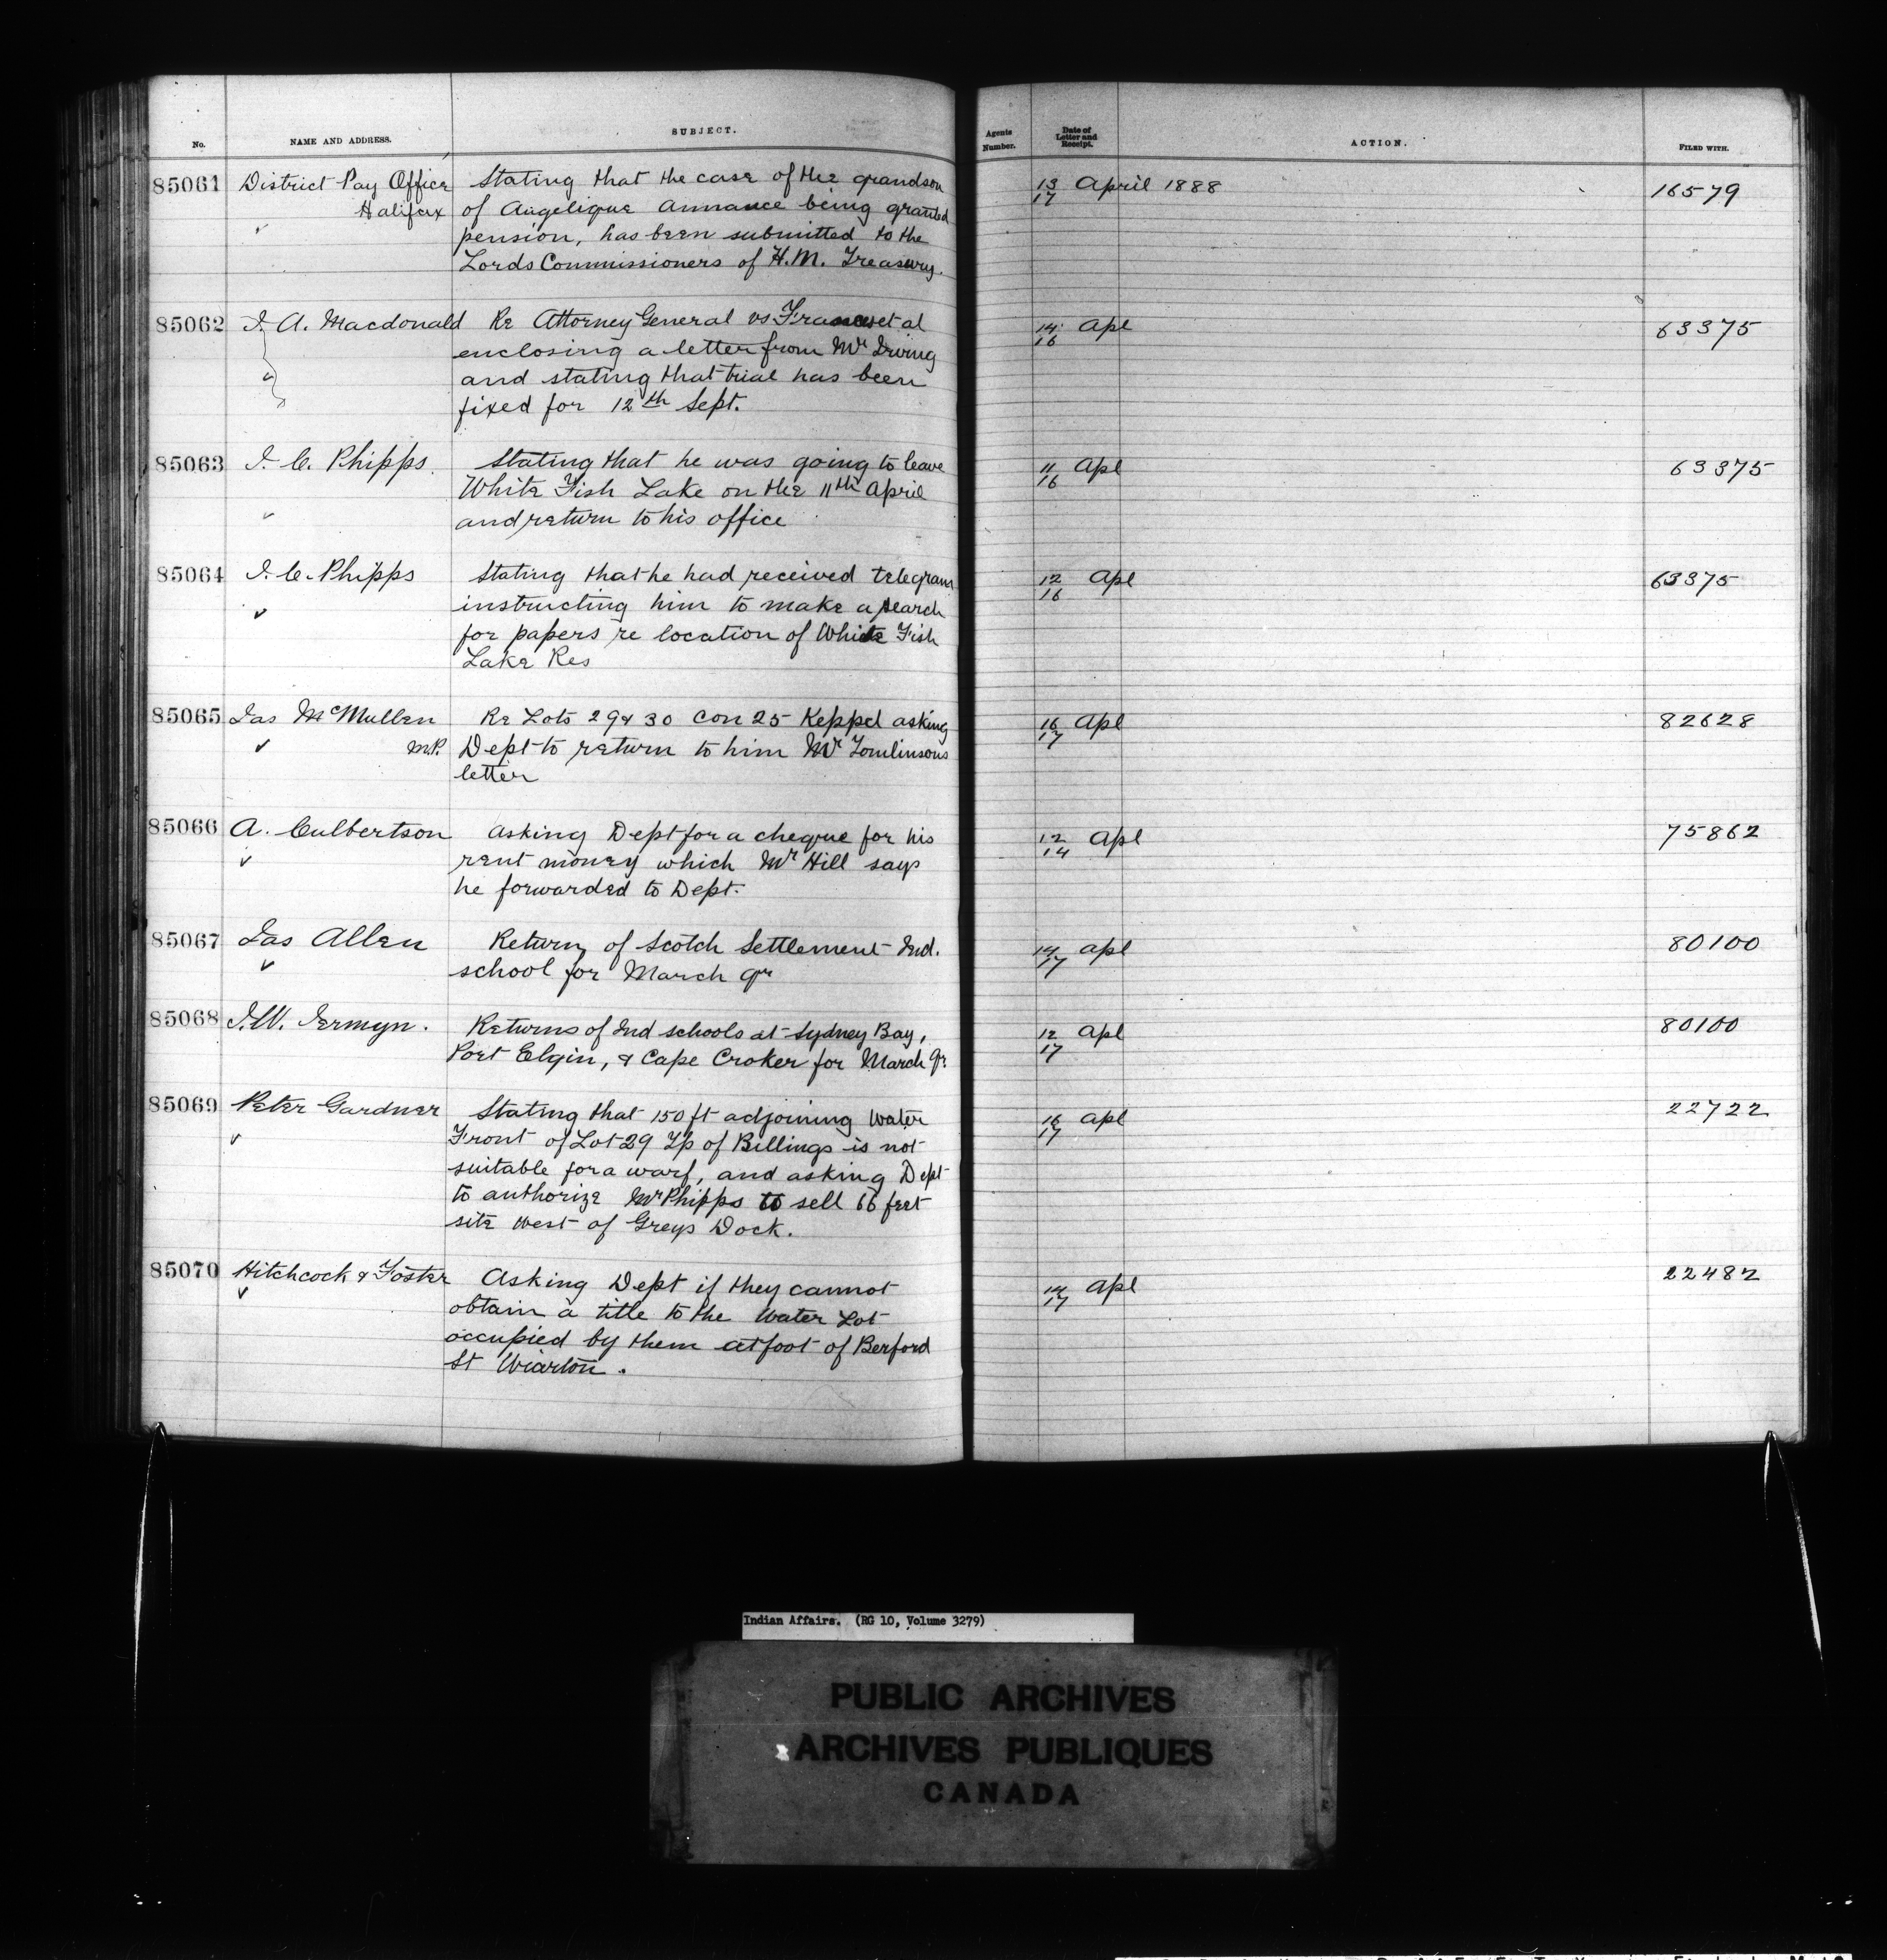 No. NAME AND ADDRESS. SUBJECT. Agents Number. Date of Letter and Receipt. ACTION. FILED WITH.
85061 District Pay Office Stating that the case of the grandson 13/17 April 1888 16579
Halifax of Angelique Annance being granted
pension, has been submitted to the
Lords Commissioners of H.M. Treasury.
85062 J. A. Macdonald Re Attorney General vs Francis et al 14/16 Apl 63375
enclosing a letter from Mr Irving
and stating that trial has been
fixed for 12th Sept.
85063 J. C. Phipps. Stating that he was going to leave 11/16 Apl 63375
White Fish Lake on the 11th April
and return to his office
85064 J. C. Phipps Stating that he had received telegram 12/16 Apl 63375
instructing him to make a search
for papers re location of White Fish
Lake Res
85065 Jas McMullen Re Lots 29 & 30 Con 25 Keppel asking 16/17 Apl 82628
M.P. Dept to return to him Mr Tomlinsons
letter
85066 A. Culbertson Asking Dept for a cheque for his 12/14 Apl 75862
rent money which Mr Hill says
he forwarded to Dept.
85067 Jas Allen Return of Scotch Settlement Ind. 14/17 Apl 80100
school for March qr
85068 J. W. Jermyn. Returns of Ind schools at Sydney Bay, 12/17 Apl 80100
Port Elgin, & Cape Croker for March qr.
85069 Peter Gardner Stating that 150 ft adjoining Water 16/17 Apl 22722
Front of Lot 29 Tp of Billings is not
suitable for a warf, and asking Dept
to authorize Mr Phipps to sell 66 feet
site West of Greys Dock.
85070 Hitchcock & Foster Asking Dept if they cannot 14/17 Apl 22482
obtain a title to the Water Lot
occupied by them at foot of Berford
St Wiarton.
Indian Affairs. (RG 10, Volume 3279)
PUBLIC ARCHIVES
ARCHIVES PUBLIQUES
CANADA